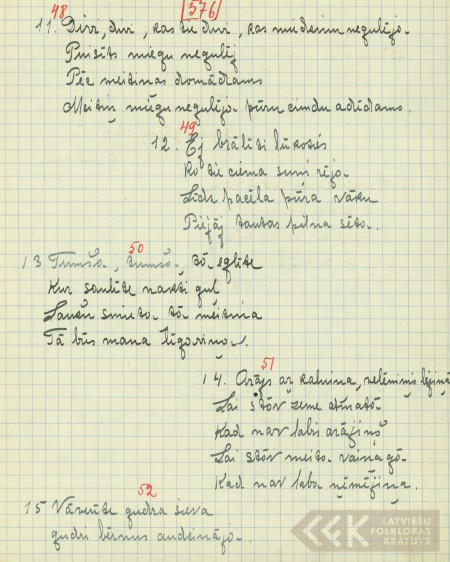 48
576
11. Divi, divi, kas tie divi, kas miedziņu negulēja.
Puisīts miegu negulēj
Pēc meitiņas domādams
Meitiņ miegu negulēja pūru cimdu adīdams.
49
12. Ej brālīti lūkoties
Ko tie ciema suņi rēja
Līdz pacēla pūra vāku
Piejāj tautas pilna sēta.
50
13 Tumša, tumša, tā eglīte
Kur saulīte nakti gul
Lauku smieta tā meitiņa
Tā būs mana līgaviņa.
51
14. Arājs ar kalniņa, nelēmis lejiņā
Lai stāv zeme atmatā
Kad nav labis arājiņš
Lai stāv meita vaiņagā
Kad nav laba ņēmējiņa.
52
15 Vāverīte gudra sieva
gudri bērnus audzināja.
LATVIEŠU
FOLKLORAS
KRĀTUVE